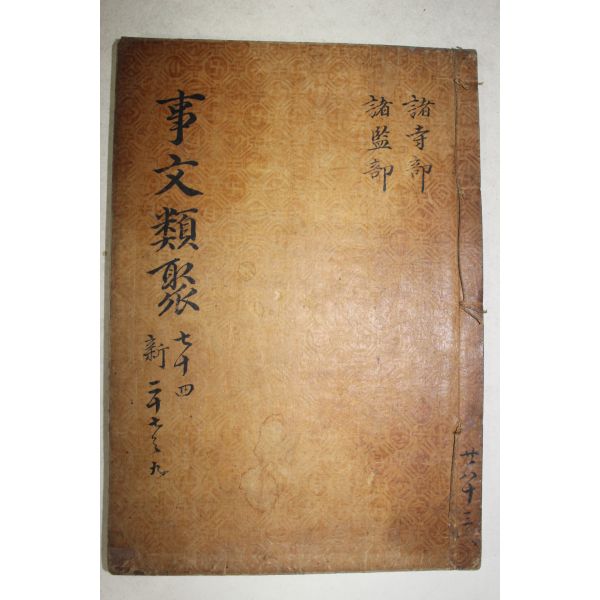 諸寺部
諸監部
事文類聚
七十四
新 二十七之九